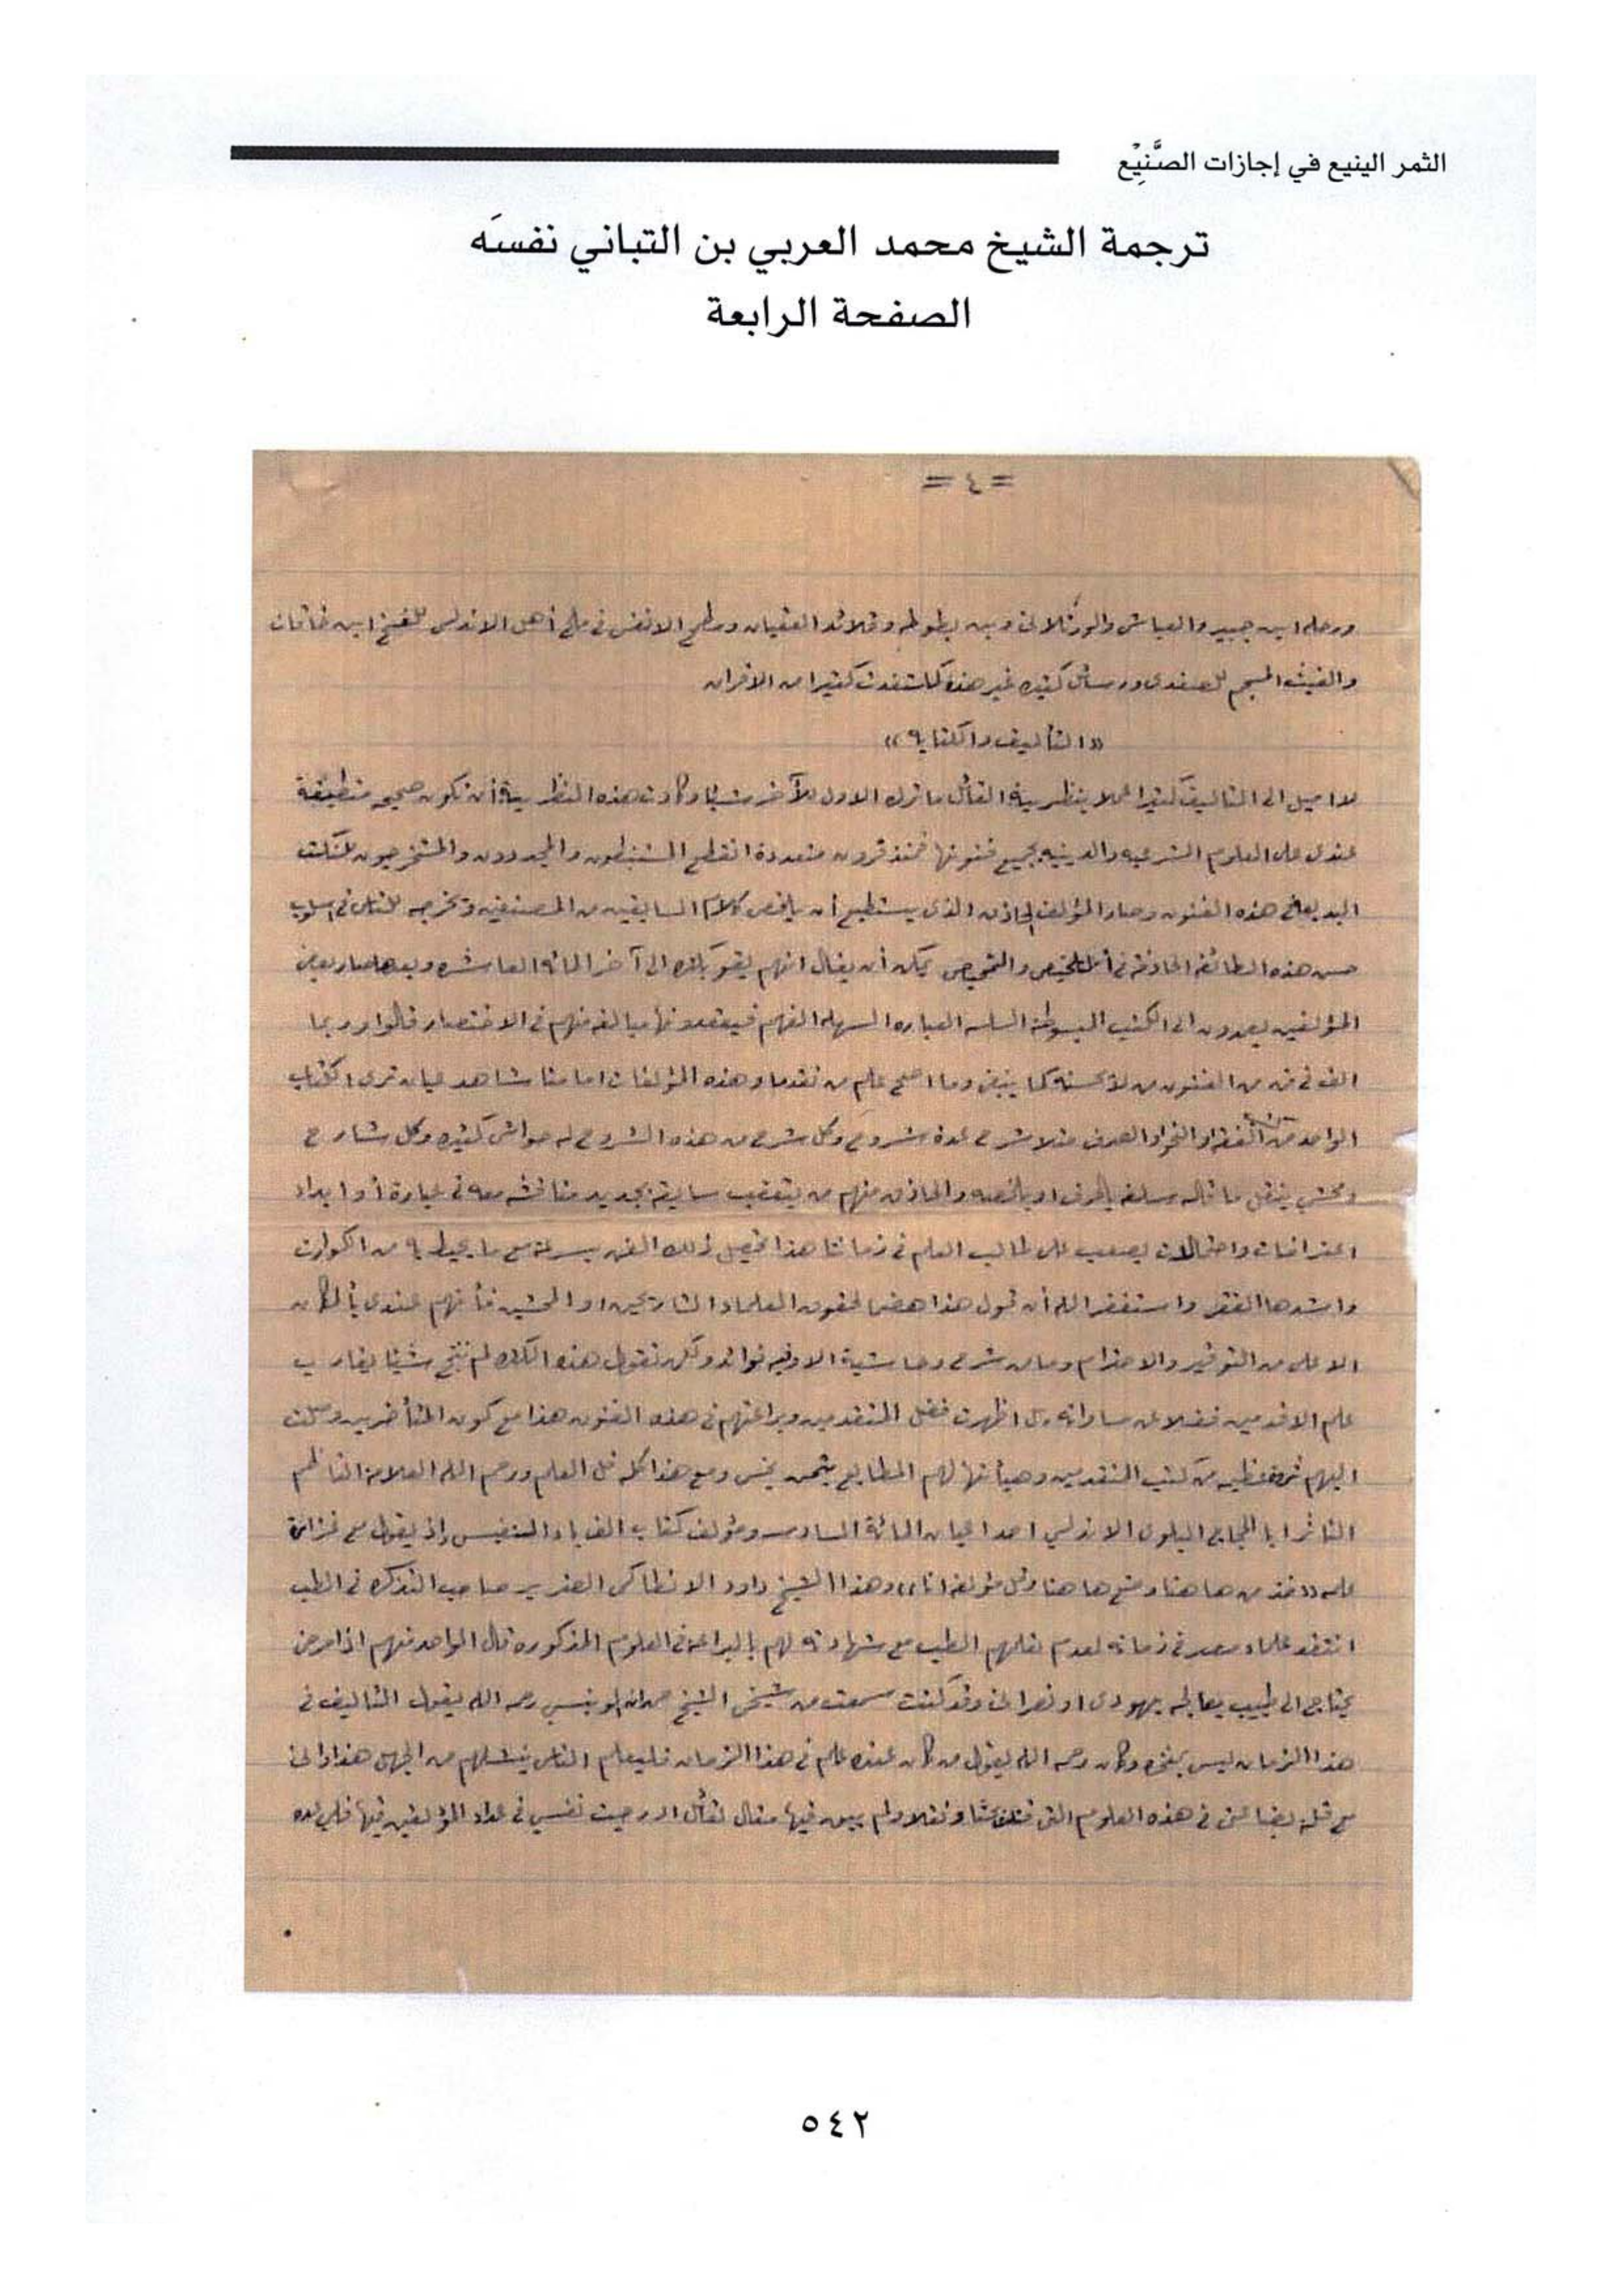 الثمر الينيع في إجازات الصَّنِيْع
ترجمة الشيخ محمد العربي بن التباني نفسَه
الصفحة الرابعة
= ٤ =
ورحلة ابن جبير والعياشي والورثلاني وبن بطوطه وقلائد العقيان ومطمح الانفس في ملح أهل الاندلس للفتح ابن خاقان
والغيث المسجم للصفدي ورسائل كثيره غير هذه كما استفدت كثيرا من الاقران
((التأليف والكتابه))
لا اميل الى التأليف كثيرا عملا بنظرية القائل ما ترك الاول للآخر شيئا وكادت هذه النظرية أن تكون صحيحه منطبقة
عندي على العلوم الشرعيه والدينيه بجميع فنونها فمنذ قرون متعددة انقطع المستنبطون والمجددون والمستخرجون للنكت
البديعة في هذه الفنون وصار المؤلف الحاذق الذي يستطيع أن يلخص كلام السابقين من المصنفين ويخرجه للناس في اسلوب
حسن هذه الطائفة الحاذقة في التلخيص والتمحيص يمكن أن يقال انهم بقوا بكثره الى آخر المائة العاشره وبعدها صار بعض
المؤلفين يعمدون الى الكتب المبسوطة السلسه العباره السهله الفهم فيعقدونها مبالغه منهم في الاختصار قالوا وربما
الف في فن من الفنون من لا يحسنه كما ينبغي وما اضحى علم من تقدما وهذه المؤلفات امامنا شاهد عيان ترى الكتاب
الواحد من الفقه او النحو او الصرف مثلا شرح عدة شروح وكل شرح من هذه الشروح له حواش كثيره وكل شارح
ومحشي ينقل ما قاله سلفه بالحرف او يلخصه والحاذق منهم من يتعقب سابقه بجديد مناقشه معه في عبارة أو ايراد
اعتراضات واحتمالات يصعب على طالب العلم في زماننا هذا تحصيل ذلك الفن بسرعة مع ما يحيط به من الكوارث
واشدها الفقر واستغفر الله أن قول هذا هضما لحقوق العلماء الشارحين او المحشين فأنهم عندي بالمكان
الاعلى من التوقير والاحترام وما من شرح وحاشية الا وفيه فوائد ولكن نقول هذه الكثره لم تنتج شيئا يقارب
علم الاقدمين فضلا عن مساواته بل اظهرت فضل المتقدمين وبراعتهم في هذه الفنون هذا مع كون المتأخرين وصلت
اليهم ثروة عظيمه من كتب المتقدمين وهيأتها لهم المطابع بثمن بخس ومع هذا كله قل العلم ورحم الله العلامة الناظم
الناثر ابا الحجاج البلوي الاندلسي احد اعيان المائة السادسه ومؤلف كتاب الف باء النفيس إذ يقول مع غزارة
علمه ((خذ من ها هنا وضع ها هنا وقل مؤلفه انا)) وهذا الشيخ داود الانطاكي الضرير صاحب التذكره في الطب
انتقد علماء مصر في زمانه لعدم تعلمهم الطب مع شهادته لهم بالبراعة في العلوم المذكوره قال الواحد منهم اذا مرض
يحتاج الى طبيب يعالجه يهودي او نصراني وقد كنت سمعت من شيخي الشيخ حمدان الونيسي رحمه الله يقول التأليف في
هذا الزمان ليس بمفخره وكان رحمه الله يقول من كان عنده علم في هذا الزمان فليعلم الناس ينتشلهم من الجهل هذا وإني
مع قلة بضاعتي في هذه العلوم التي قتلت بحثا ونقلا ولم يبق فيها مقال لقائل ادرجت نفسي في عداد المؤلفين فيها فلي عده
٥٤٢